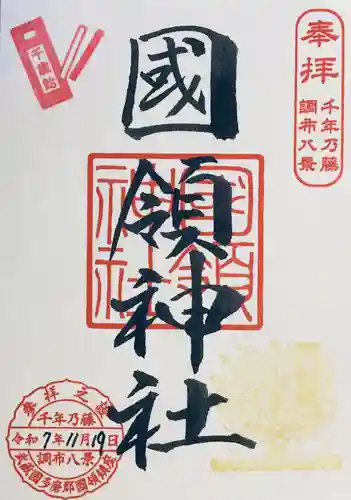 奉拝
千年乃藤
調布八景
國領神社
國領
神社
千歳飴
參拝之證
千年乃藤
令和7年11月19日
調布八景
武蔵國多磨郡國領鎮座